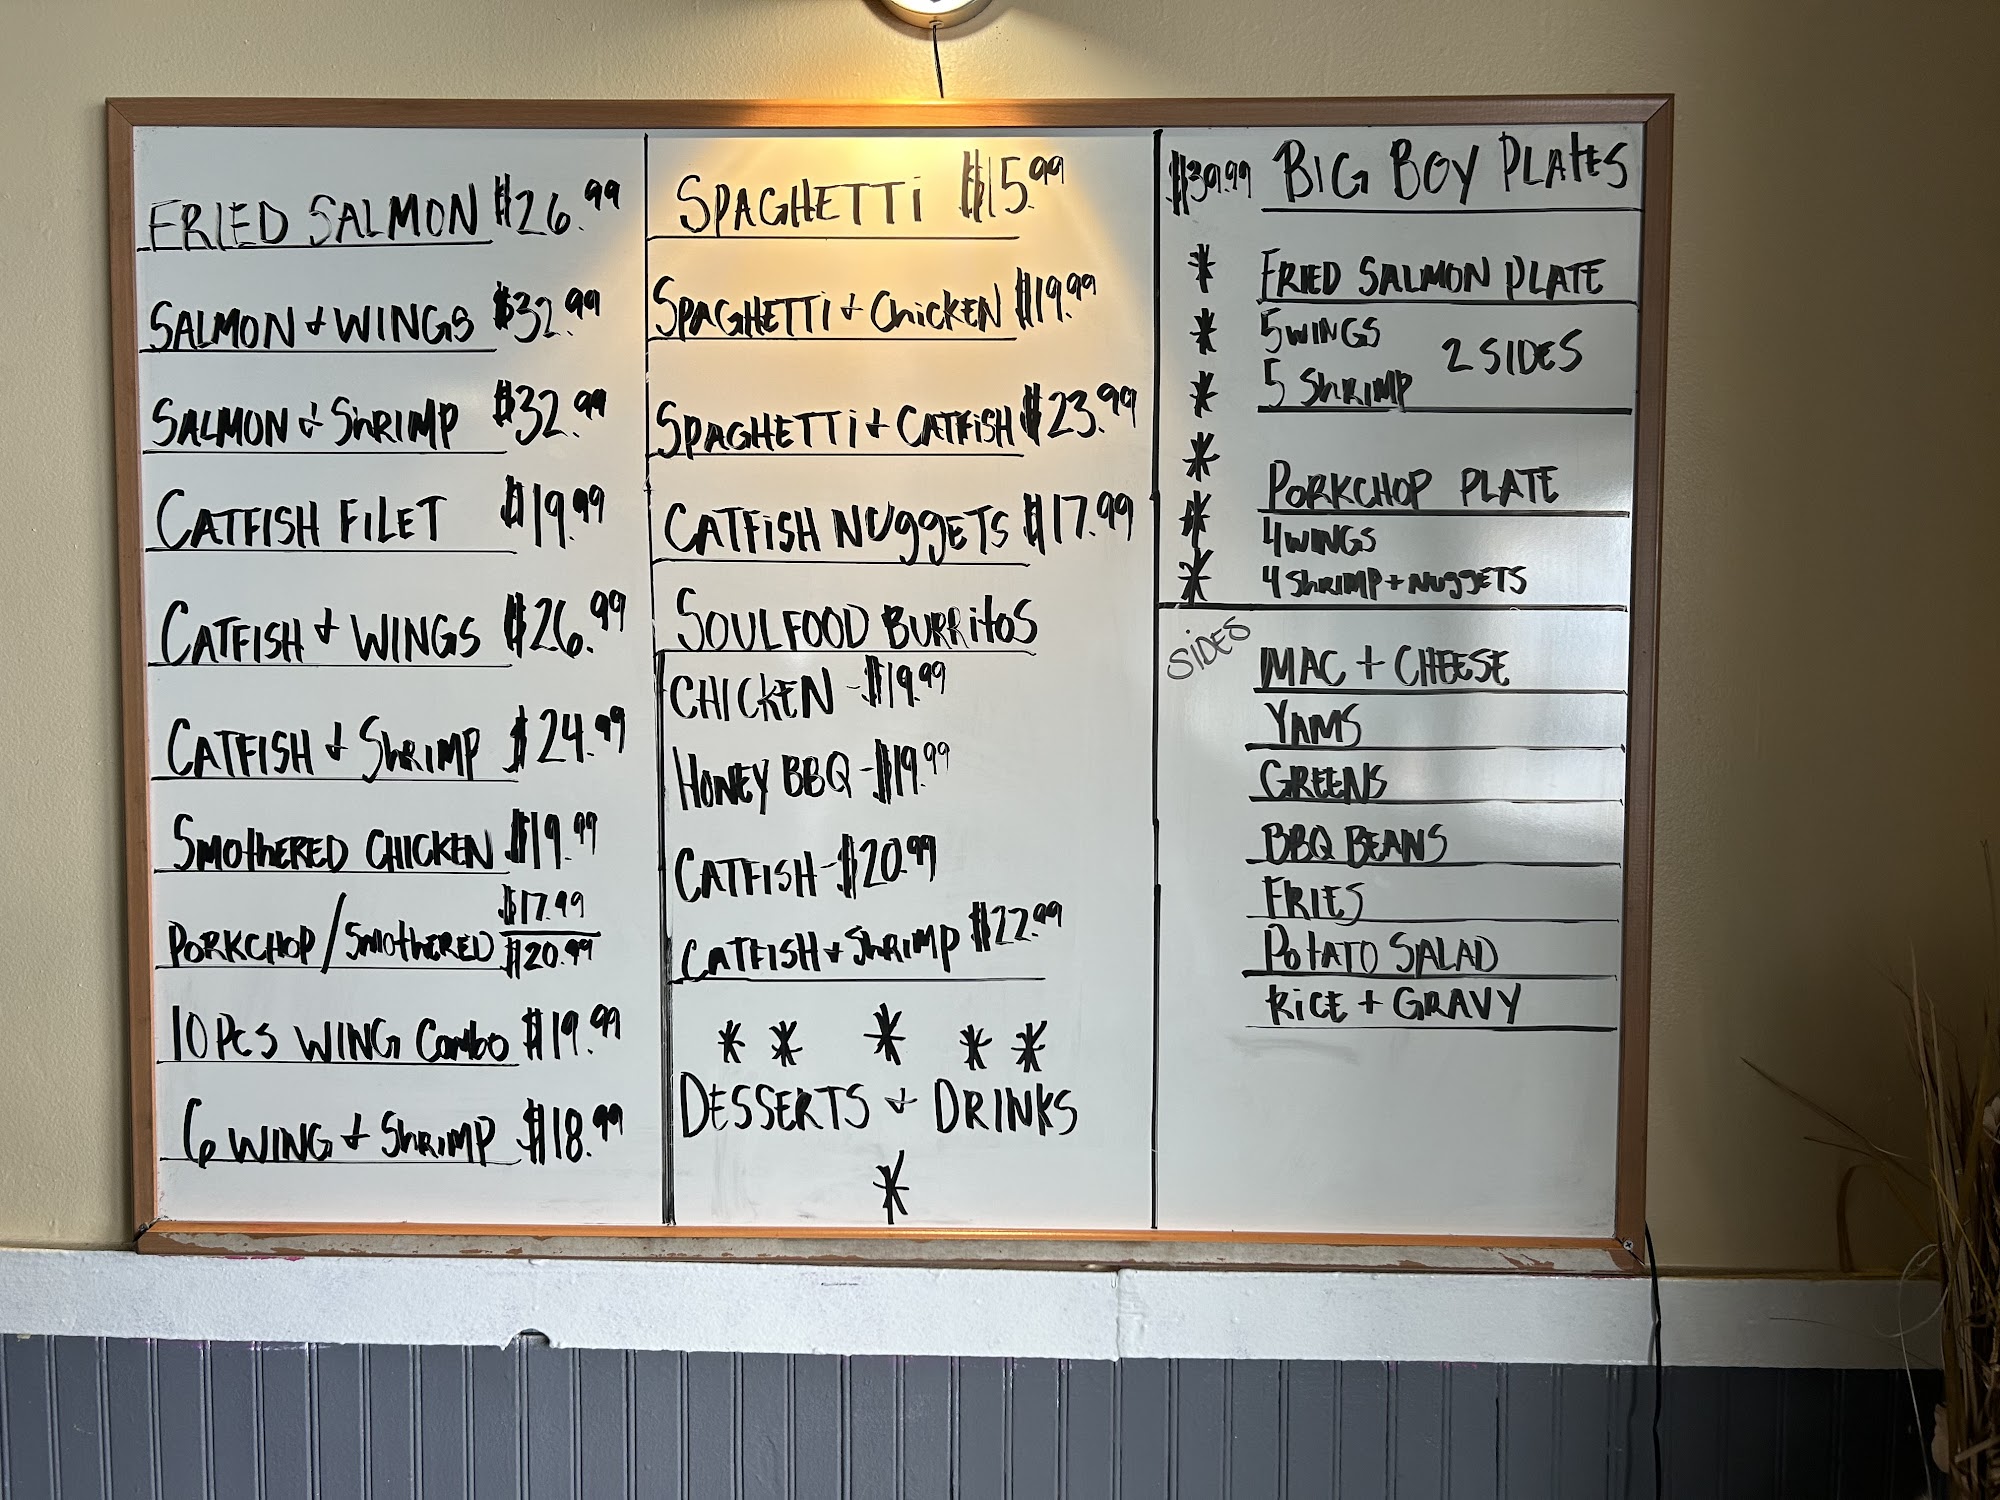 FRIED SALMON $26.99
SALMON + WINGS $32.99
SALMON + ShRIMP $32.99
CATFISH FiLET $19.99
CATFISH + WINGS $26.99
CATFISH + ShRIMP $24.99
SMOthERED CHICKEN $19.99
PORKCHOP / SMOthERED $17.99
$20.99
10 Pcs WING Combo $19.99
6 WING + ShRIMP $18.99
SPAGHETTi $15.99
SPAGHETTi + ChicKEN $19.99
SPAGHETTi + CATFiSH $23.99
CATFiSH NUggETS $17.99
SOULFOOD BURRitoS
CHICKEN - $19.99
HONEY BBQ - $19.99
CATFISH - $20.99
CATFISH + ShRIMP $22.99
* * * * *
DESSERTS + DRINKS
*
$39.99 BIG BOY PLAtES
* FRIED SALMON PLATE
* 5 WINGS
2 SIDES
* 5 ShRIMP
*
PORKCHOP PLATE
* 4 WINGS
* 4 ShRIMP + NUggETS
SiDES
MAC + CHEESE
YAMS
GREENS
BBQ BEANS
FRIES
POtATO SALAD
RiCE + GRAVY